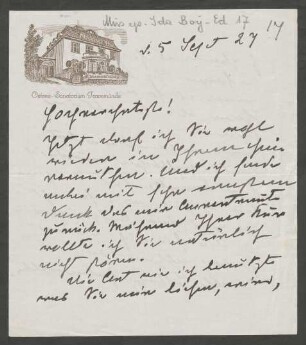 Mus. ep. Ida Boy-Ed 17
d. 5 Sept 27
17
Ostsee-Sanatorium Travemünde
Hochverehrteste!
Jetzt darf ich Sie wohl
wieder in Ihrem Heim
vermuthen. Und ich sende
mit sehr
Dank das mir Anvertraute
zurück. Während Ihrer Kur
wollte ich Sie natürlich
nicht stören.
Die Art wie ich benutzte
was Sie mir liehen, wird,